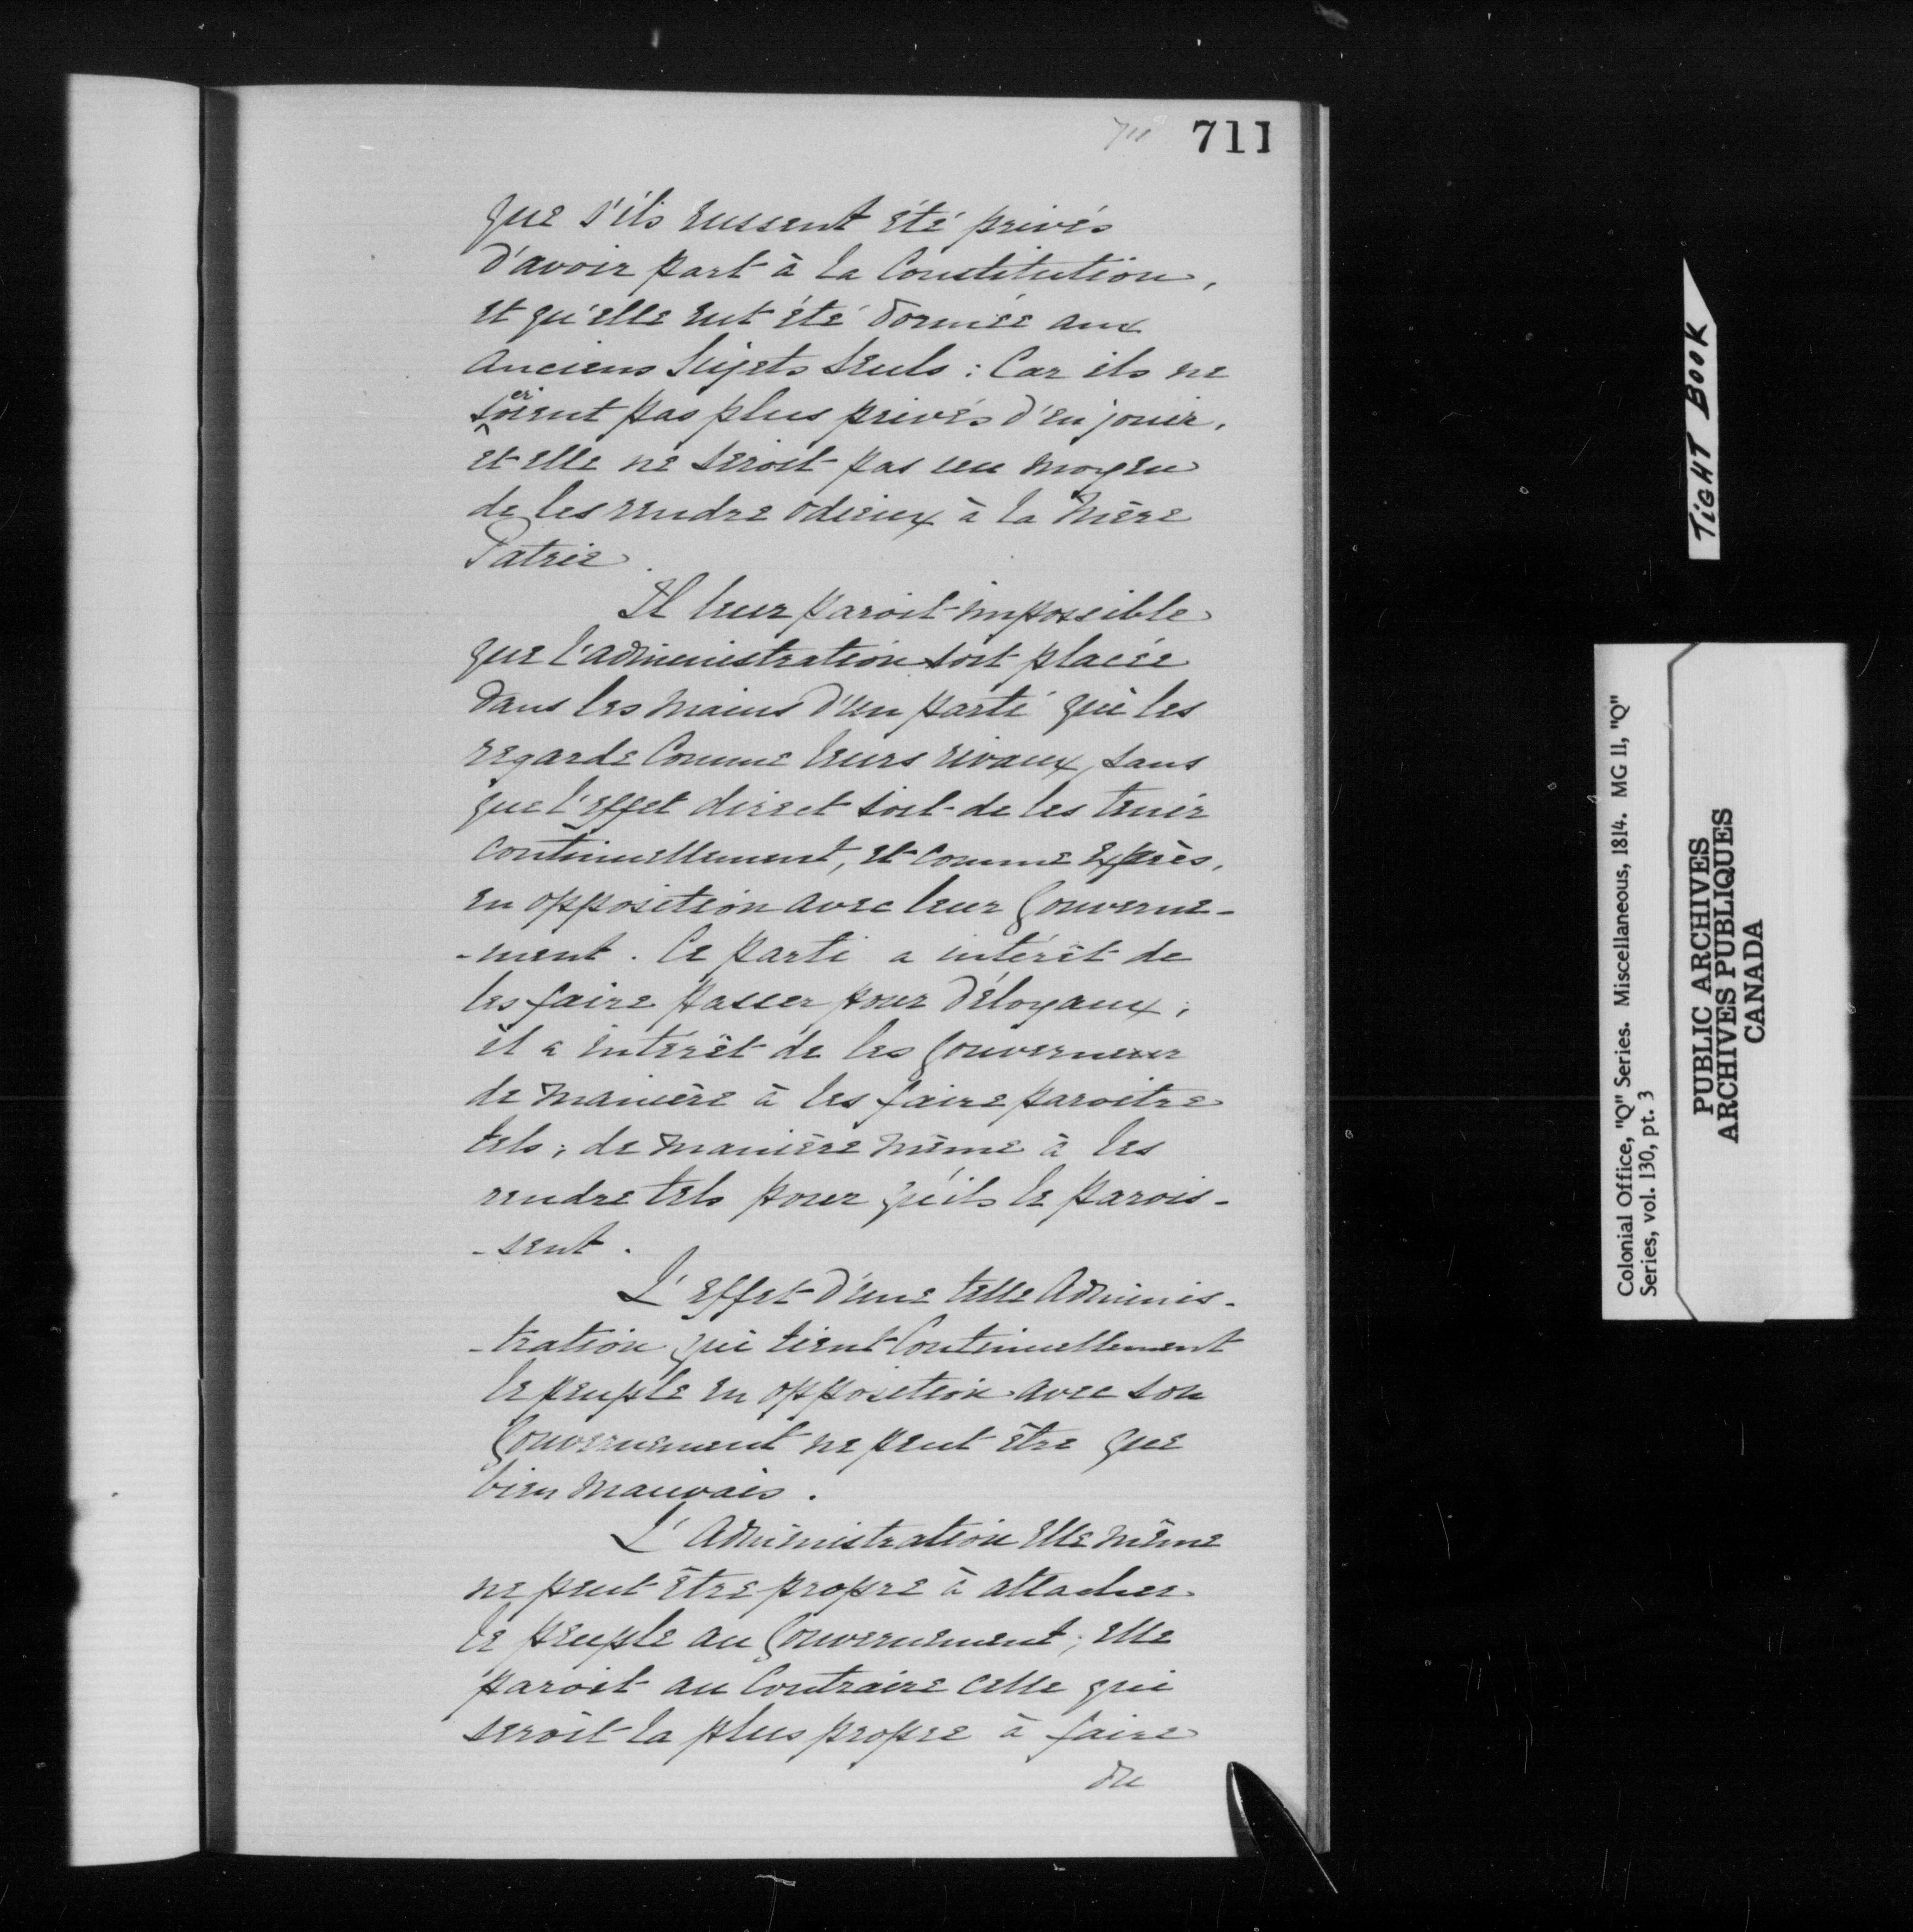 711 711
que s'ils eussent été privés
d'avoir part à la Constitution,
et qu'elle eut été donnée aux
anciens Sujets seuls : Car ils ne
seroient pas plus privés d'en jouir,
et elle ne seroit pas un moyen
de les rendre odieux à la Mère
Patrie.
Il leur paroit impossible
que l'administration soit placée
dans les mains d'un parti qui les
regarde Comme leurs rivaux, sans
que l'effet direct soit de les tenir
continuellement, et comme exprès,
en opposition avec leur Gouverne-
-ment. Ce parti a intérêt de
les faire passer pour déloyaux;
il a intérêt de les Gouverner
de manière à les faire paroitre
tels; de manière même à les
rendre tels pour qu'ils le parois-
-sent.
L'effet d'une telle Adminis-
-tration qui tient Continuellement
le peuple en opposition avec son
Gouvernement ne peut être que
bien mauvais.
L'Administration elle même
ne peut être propre à attacher
le peuple au Gouvernement; elle
paroit au Contraire celle qui
seroit la plus propre à faire
du
TIGHT BOOK
Colonial Office, "Q" Series. Miscellaneous, 1814. MG 11, "Q"
Series, vol. 130, pt. 3
PUBLIC ARCHIVES
ARCHIVES PUBLIQUES
CANADA